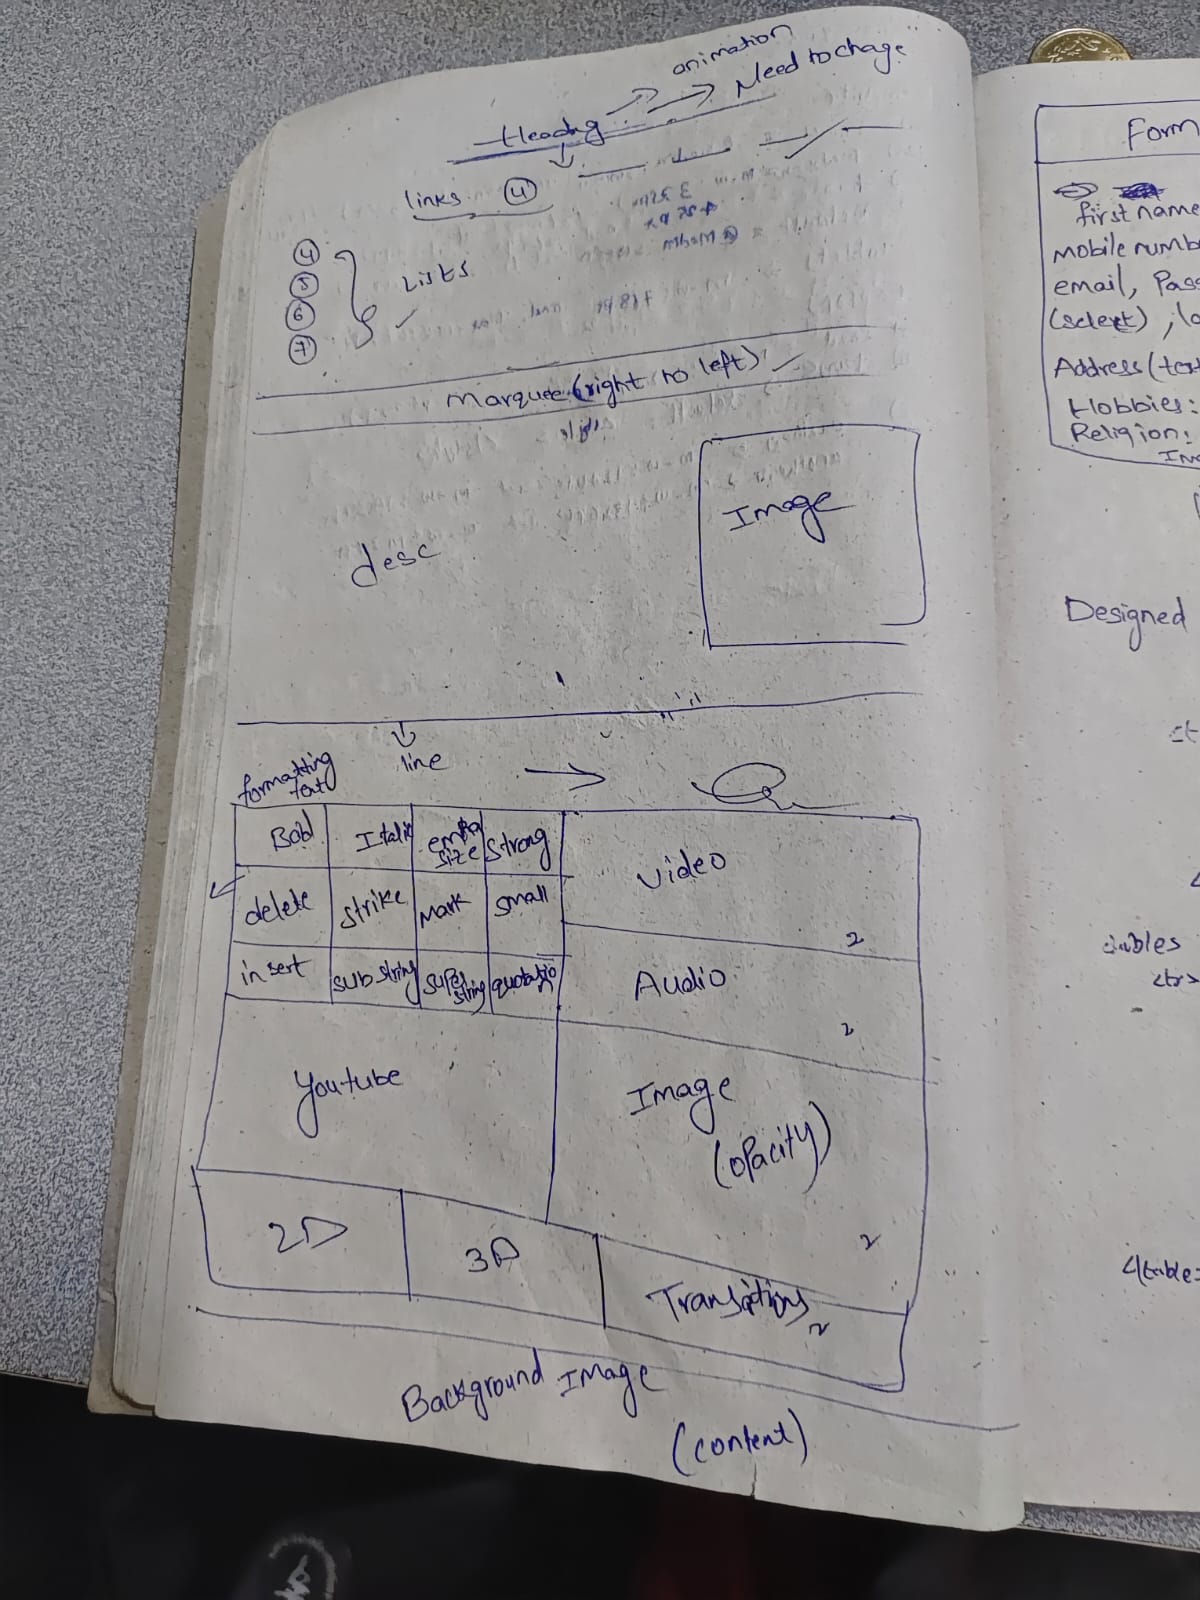 animation
Need to chage
Heading
links 4
4
5
6
7
Lists
Marquee (right to left)
desc
Image
line
formatting
text
Bold Italic size strong
delete strike Mark small
insert substring super string quotation
video
2
Audio
2
Youtube
Image
(opacity)
2
2D
3D
Transitions
2
Background Image
(content)
Form
first name
mobile numb
email, Pass
(select) , lo
Address (text
Hobbies:
Religion:
Designed